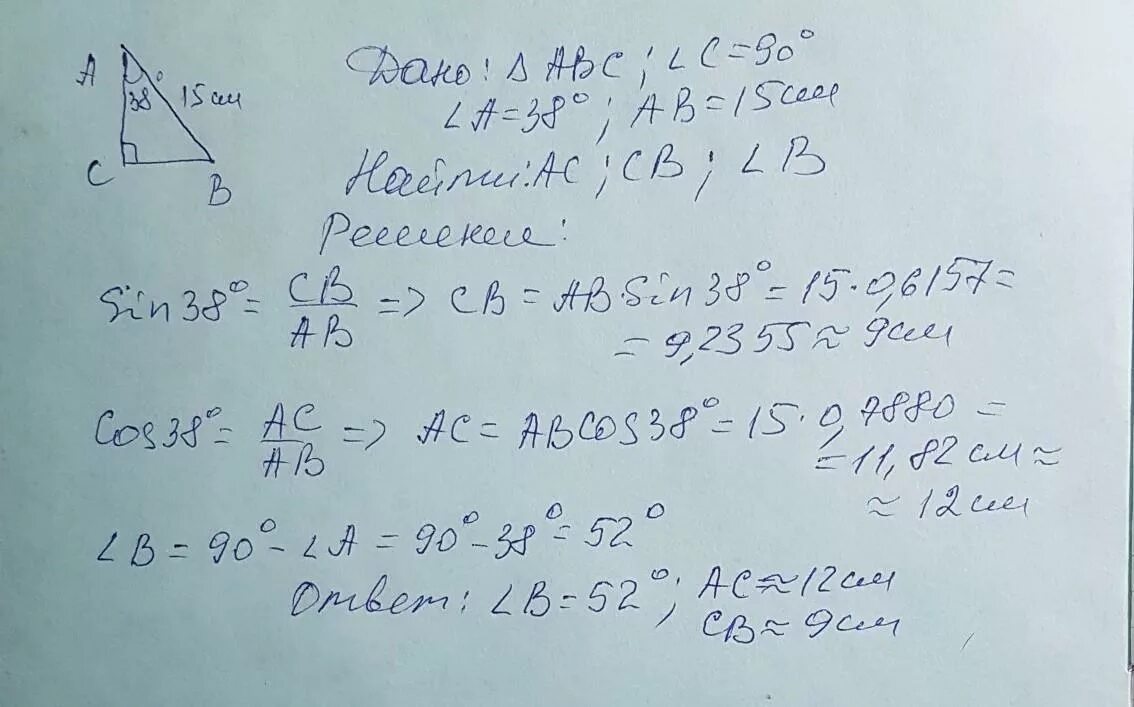 A
38°
15 см
C
B
Дано: Δ ABC ; ∠C = 90°
∠A = 38° ; AB = 15 см
Найти: AC ; CB ; ∠B
Решение:
Sin 38° = CB/AB => CB = AB·Sin 38° = 15·0,6157 =
= 9,2355 ≈ 9 см
Cos 38° = AC/AB => AC = AB Cos 38° = 15·0,7880 =
= 11,82 см ≈
≈ 12 см
∠B = 90° - ∠A = 90° - 38° = 52°
Ответ: ∠B = 52° ; AC ≈ 12 см
CB ≈ 9 см